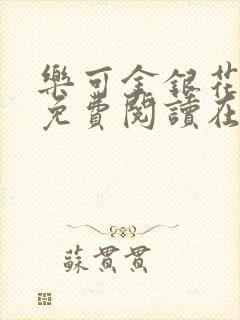 樂可金銀花
免費閱讀在
蘇貫貫